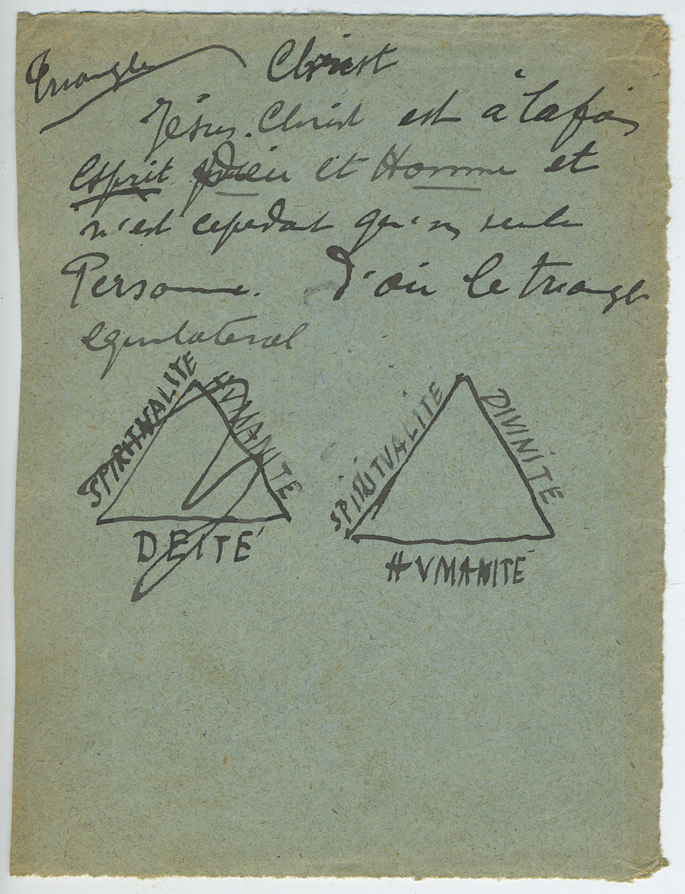 Triangle Christ
Jésus Christ est à la fois
Esprit Dieu et Homme et
n'est cependant qu'un seule
Personne. D'où le triangle
equilateral
SPIRITUALITE HUMANITE
DEITÉ
SPIRITUALITE DIVINITE
HVMANITÉ